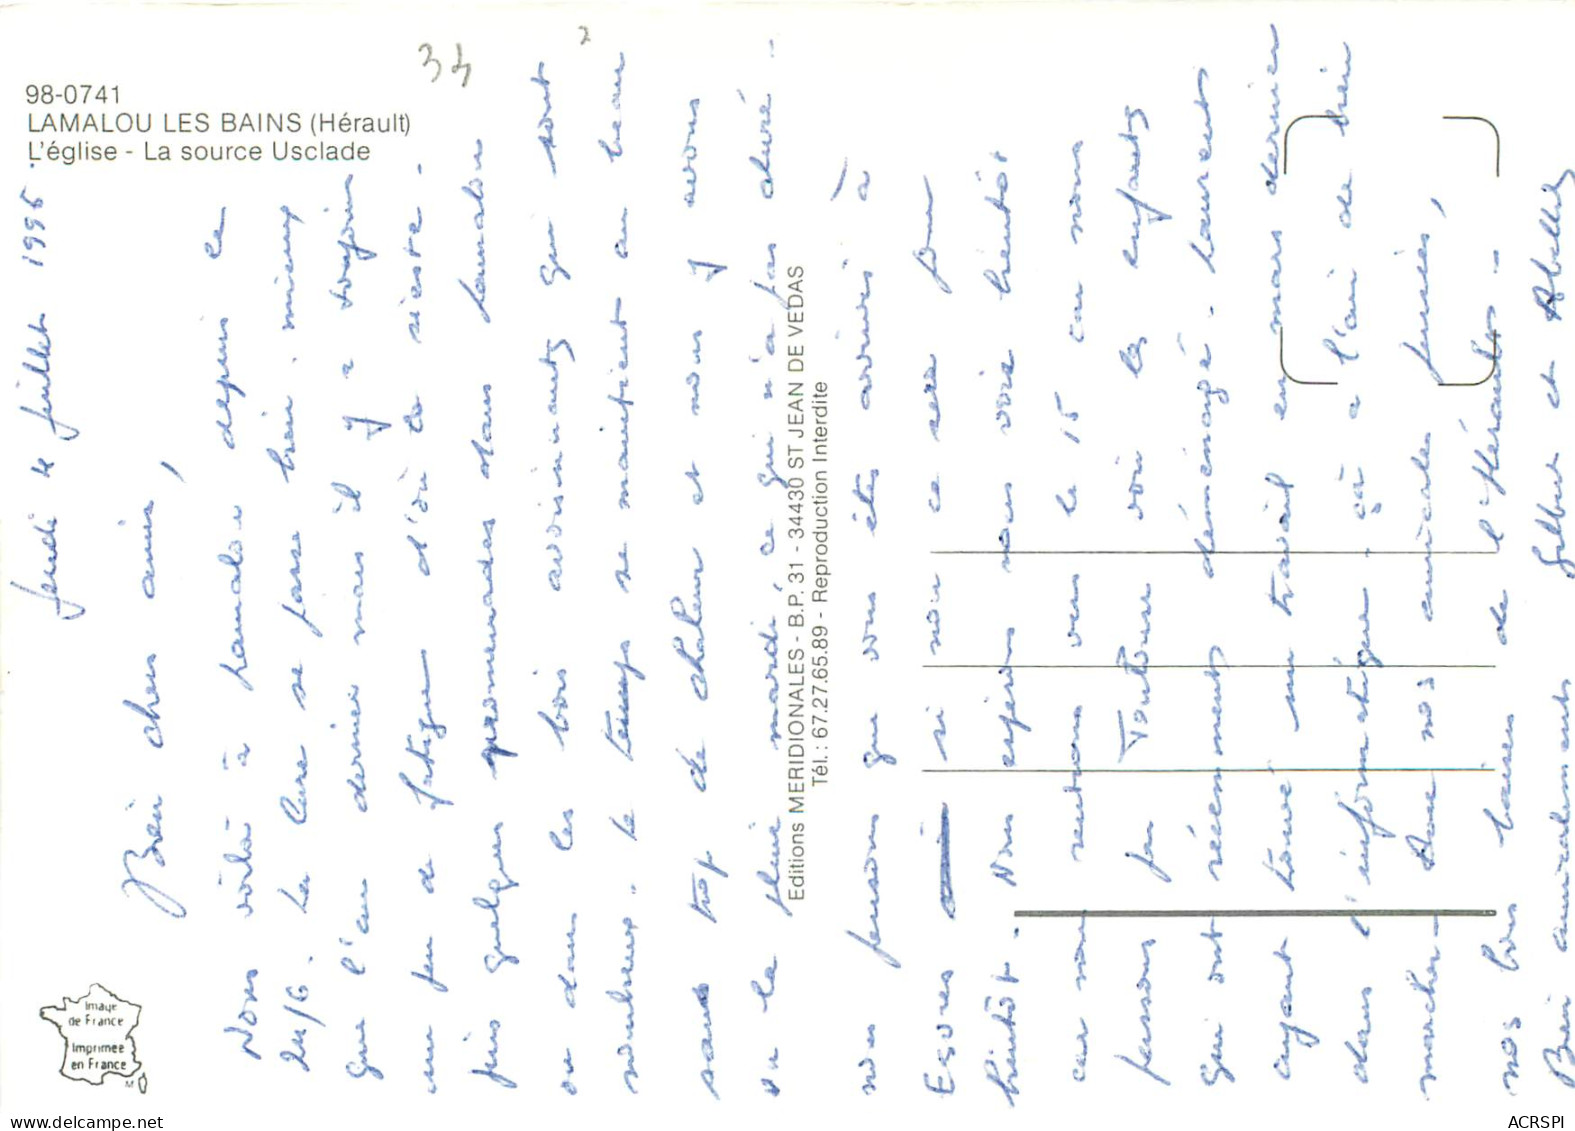 98-0741
LAMALOU LES BAINS (Hérault)
L'église - La source Usclade
34
2
Jeudi 4 Juillet 1996.
Bien chers amis,
Nous voilà à Lamalou depuis le
24/6. La cure se passe bien. mieux
que l'an dernier mais il y a toujours
un peu de fatigue d'où la sieste.
puis quelques promenades dans Lamalou
ou dans les bois avoisinants qui sont
nombreux.. le temps se maintient au beau
sans trop de chaleur et nous y avons
vu la pluie mardi, ce qui n'a pas duré..
nous pensons que vous êtes arrivés à
si non ce sera pour
bientôt. Nous espérons vous voir bientôt
car nous rentrons vers le 15 car nous
passons par Toulouse voir les enfants
qui ont récemment déménagé. Laurent
ayant trouvé un travail en mars dernier
dans l'informatique. çà a l'air de bien
marcher. Avec nos amicales pensées,
nos bons baisers de l'Hérault..
Bien amicalement Gilbert et
Editions MERIDIONALES - B.P. 31 - 34430 ST JEAN DE VEDAS
Tél.: 67.27.65.89 - Reproduction Interdite
Image
de France
Imprimée
en France
M
delcampe.net
ACRSPI